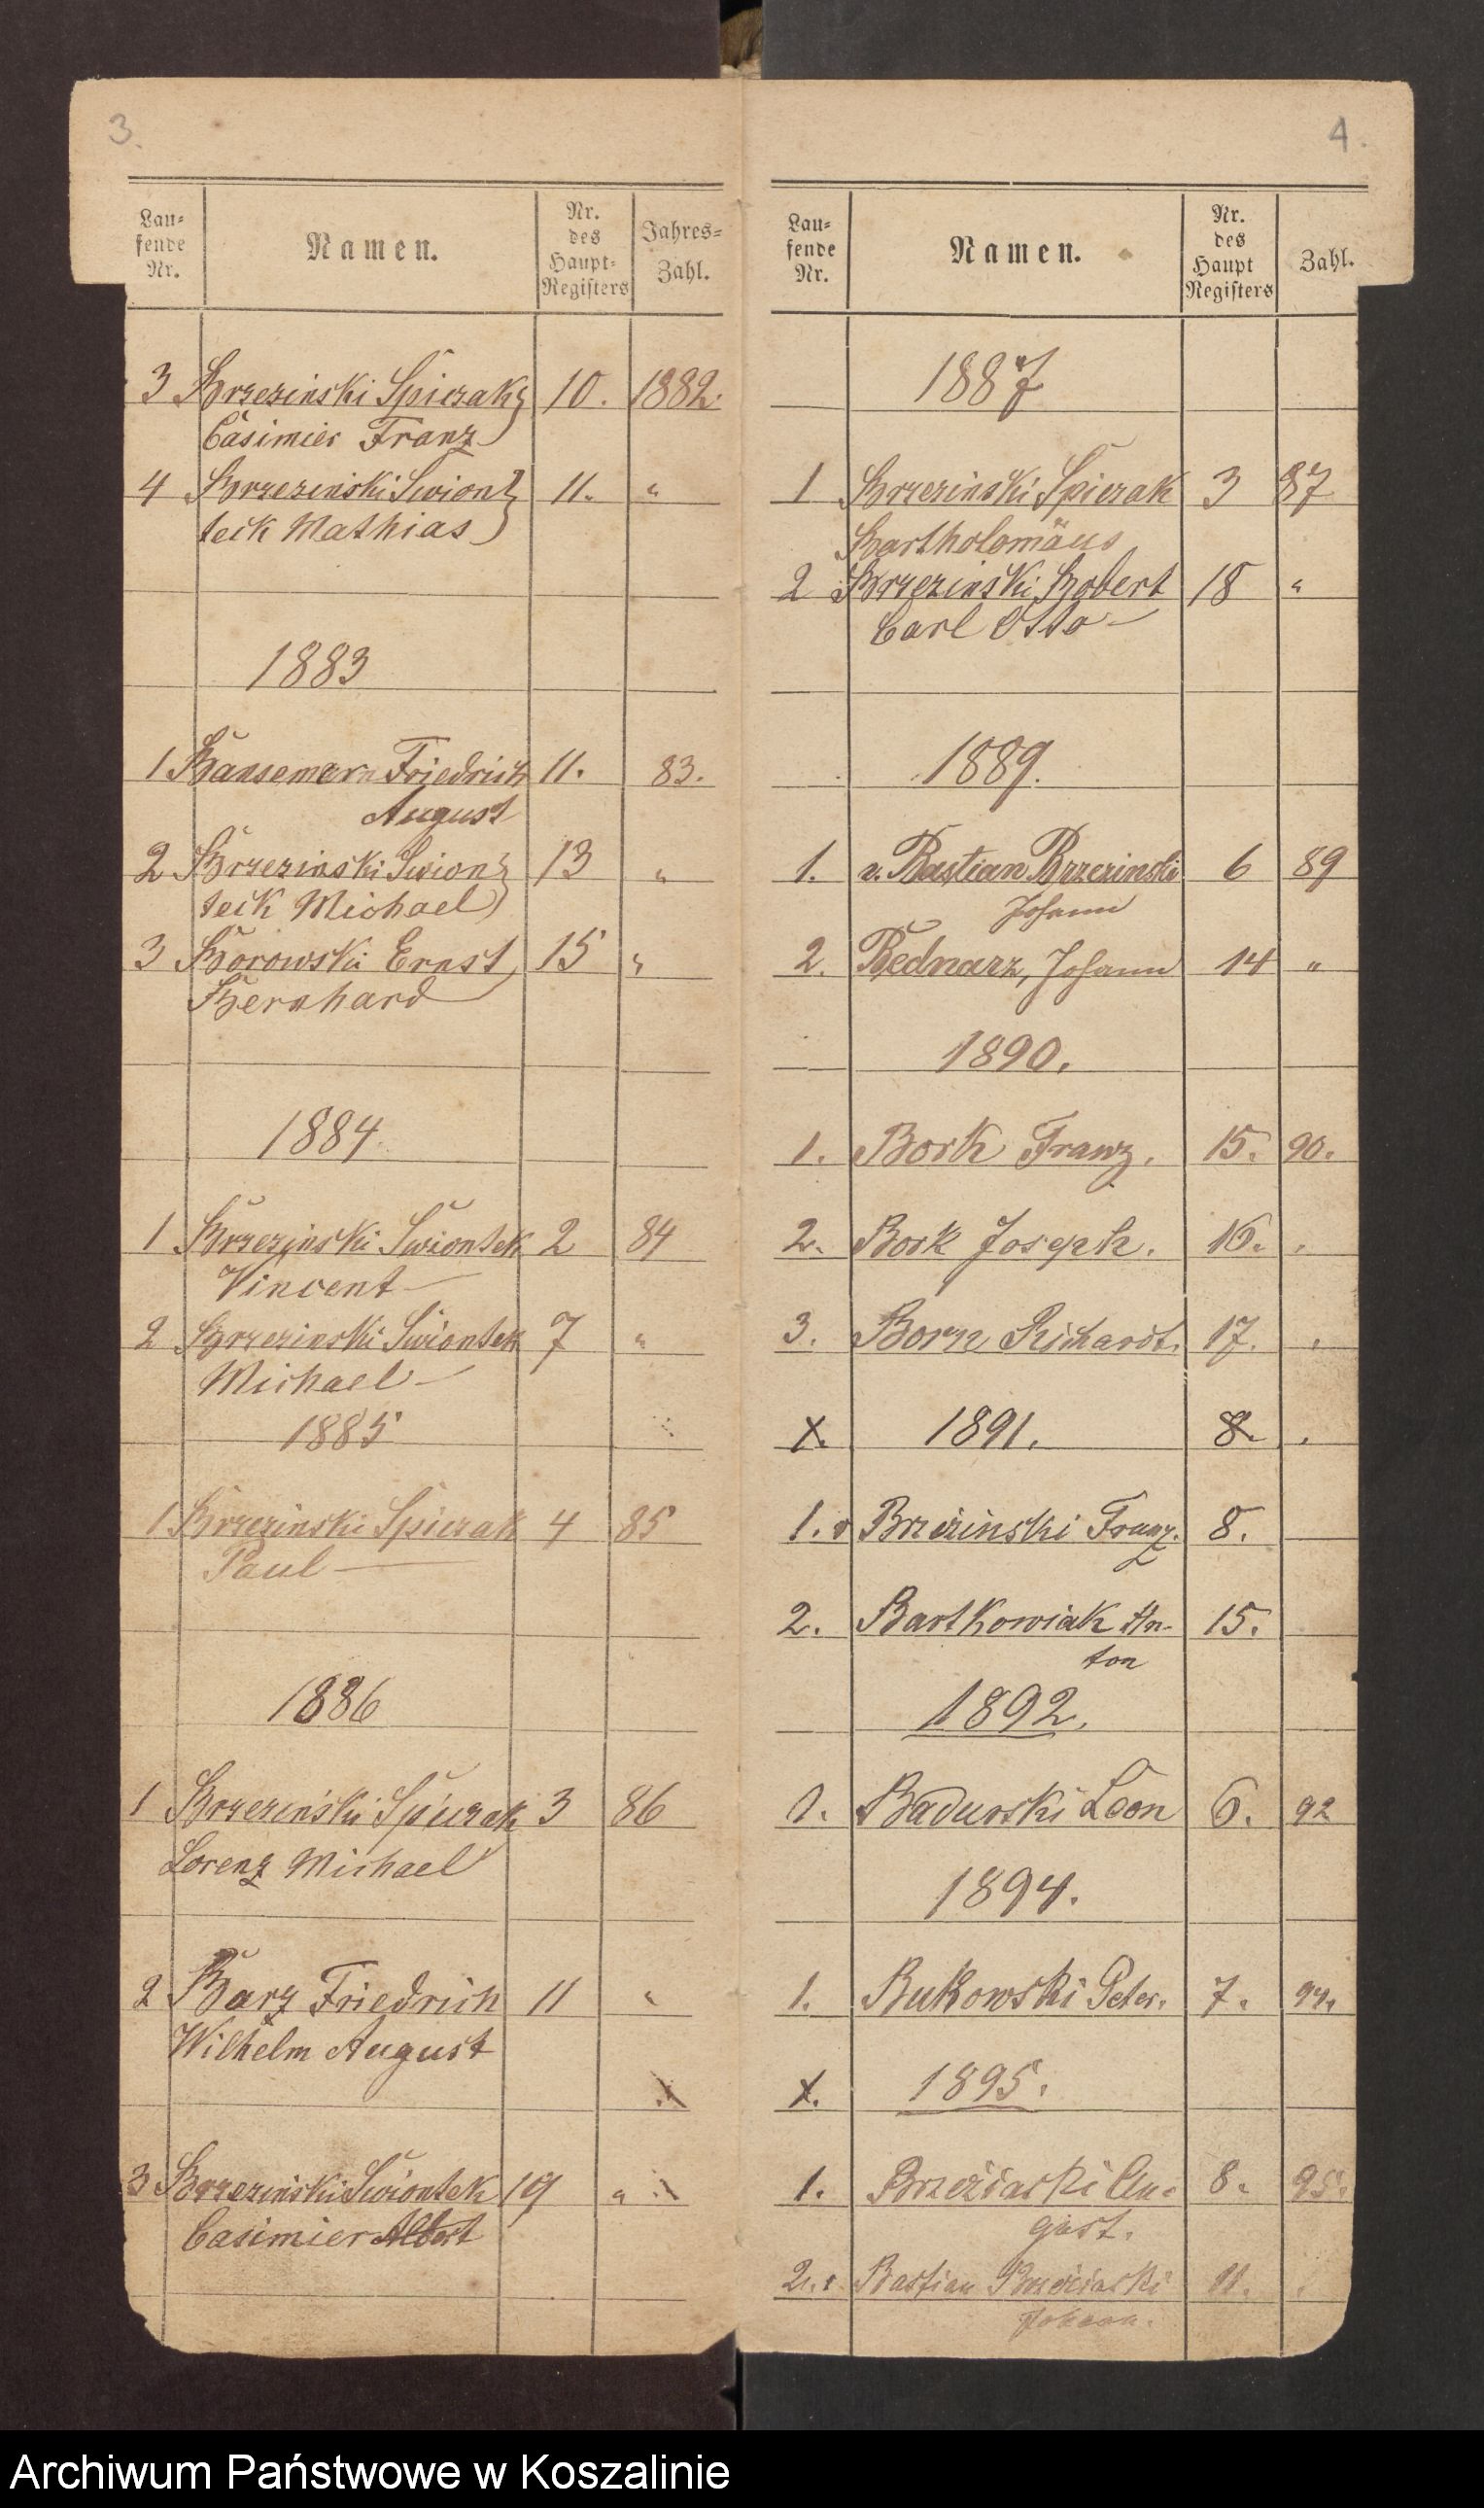 3.
Lau=
fende
Nr.
Namen.
Nr.
des
Haupt=
Registers
Jahres=
Zahl.
3 Brzezinski Spiczak 10. 1882.
Casimier Franz
4 Brzezinski Swion 11. "
teck Mathias
1883
1 Bansemern Friedrich 11. 83.
August
2 Brzezinski Swion 13 "
teck Michael
3 Borowski Ernst 15 "
Bernhard
1884
1 Brzezinski Swiontek 2 84
Vincent
2 Brzezinski Swiontek 7 "
Michael
1885
1 Brzezinski Spiczak 4 85
Paul
1886
1 Brzezinski Spiczak 3 86
Lorenz Michael
2 Barz Friedrich 11 "
Wilhelm August
3 Brzezinski Swiontek 19 "
Casimier Albert
4.
Lau=
fende
Nr.
Namen.
Nr.
des
Haupt
Registers
Zahl.
1887
1 Brzezinski Spiczak 3 87
Bartholomäus
2 Brzezinski Robert 18 "
Carl Otto
1889.
1. v. Bastian Brzezinski 6 89
Johann
2. Bednarz, Johann 14 "
1890.
1. Bork Franz. 15. 90.
2. Bork Joseph. 16. "
3. Born Richardt. 17. "
X. 1891. 8. "
1. v Brzezinski Franz. 8.
2. Bartkowiak An- 15.
ton
1892.
1. Badurski Leon 6. 92
1894.
1. Bukowski Peter. 7. 94.
X. 1895.
1. Brzezinski Au= 8. 95.
gust.
2. v. Bastian Brzezinski 11. "
Johann.
Archiwum Państwowe w Koszalinie